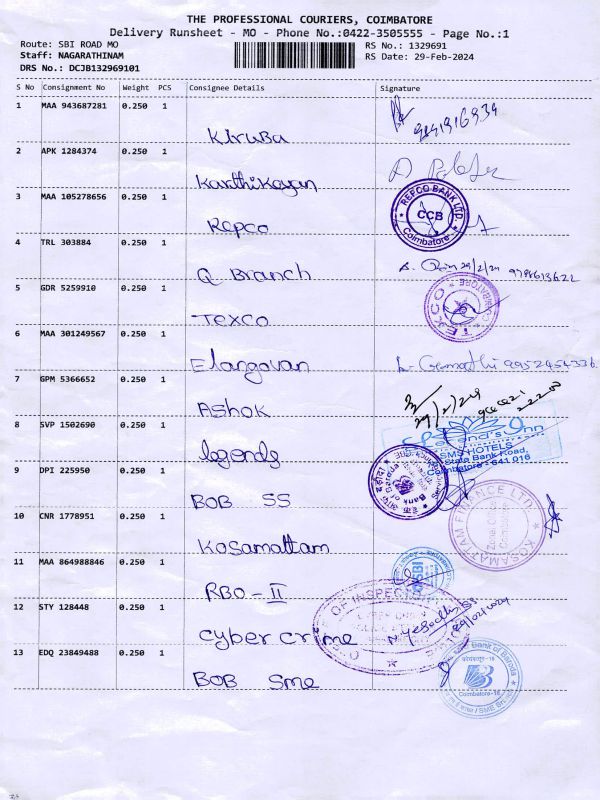 THE PROFESSIONAL COURIERS, COIMBATORE
Delivery Runsheet - MO - Phone No.:0422-3505555 - Page No.:1
Route: SBI ROAD MO
RS No.: 1329691
Staff: NAGARATHINAM
RS Date: 29-Feb-2024
DRS No.: DCJB132969101
S No Consignment No Weight PCS Consignee Details Signature
1 MAA 943687281 0.250 1
Kiruba
2 APK 1284374 0.250 1
Karthikeyan
3 MAA 105278656 0.250 1
Repco
REPCO BANK LTD.
CCB
Coimbatore
4 TRL 303884 0.250 1
Q Branch
29/2/24 9798613622
5 GDR 5259910 0.250 1
Texco
TEXCO
COIMBATORE
6 MAA 301249567 0.250 1
Elangovan
9952454336
7 GPM 5366652 0.250 1
Ashok
29/2/24
8 SVP 1502690 0.250 1
legends
SMS HOTELS
State Bank Road,
Coimbatore - 641 018
9 DPI 225950 0.250 1
BOB SS
Bank of Baroda
10 CNR 1778951 0.250 1
Kosamattam
KOSAMATTAM FINANCE LTD.
11 MAA 864988846 0.250 1
RBO - II
SBI
12 STY 128448 0.250 1
Cyber crime
OF INSPEC
29/02/2024
13 EDQ 23849488 0.250 1
BOB Sme
Bank of Baroda
Coimbatore-18
SME